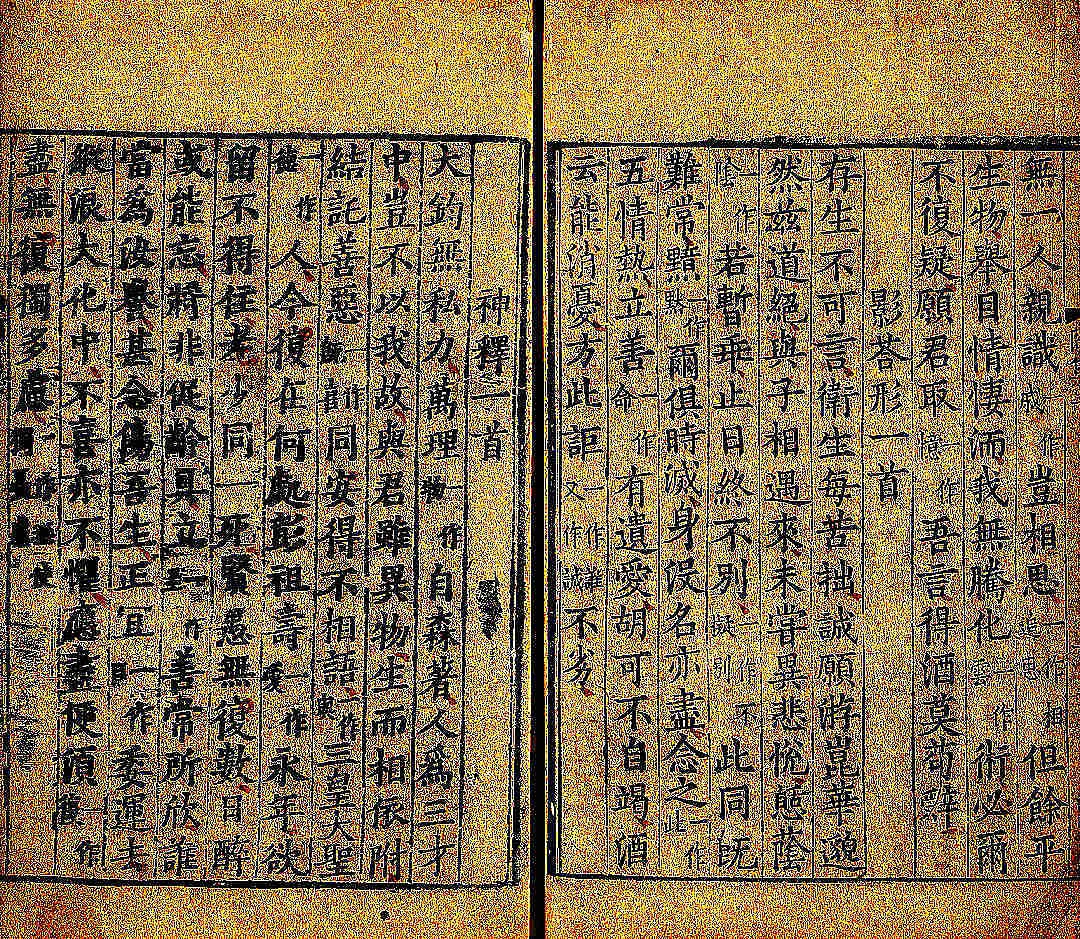 無一人親識一作戚豈相思一作相追思但餘平
生物舉目情悽洏我無騰化一作雲術必爾
不復疑願君取一作憶吾言得酒莫苟辭
影荅形一首
存生不可言衛生每苦拙誠願游崑華邈
然茲道絕與子相遇來未嘗異悲悅憩蔭
一作陰若暫乖止日終不別一作不擬別此同既
難常黯一作默爾俱時滅身沒名亦盡念之一作此
五情熱立善一作命有遺愛胡可不自竭酒
云能消憂方此詎一作誰又作誠不劣
神釋一首
大鈞無私力萬理一作物自森著人爲三才
中豈不以我故與君雖異物生而相依附
結託善惡同安得不相語一作與三皇大聖
一作人今復在何處彭祖壽一作愛永年欲
留不得住老少同一死賢愚無復數日醉
或能忘將非促齡具立善常所欣誰
當爲汝譽甚念傷吾生正宜一作委運去
縱浪大化中不喜亦不懼應盡便須一作復
盡無復獨多慮